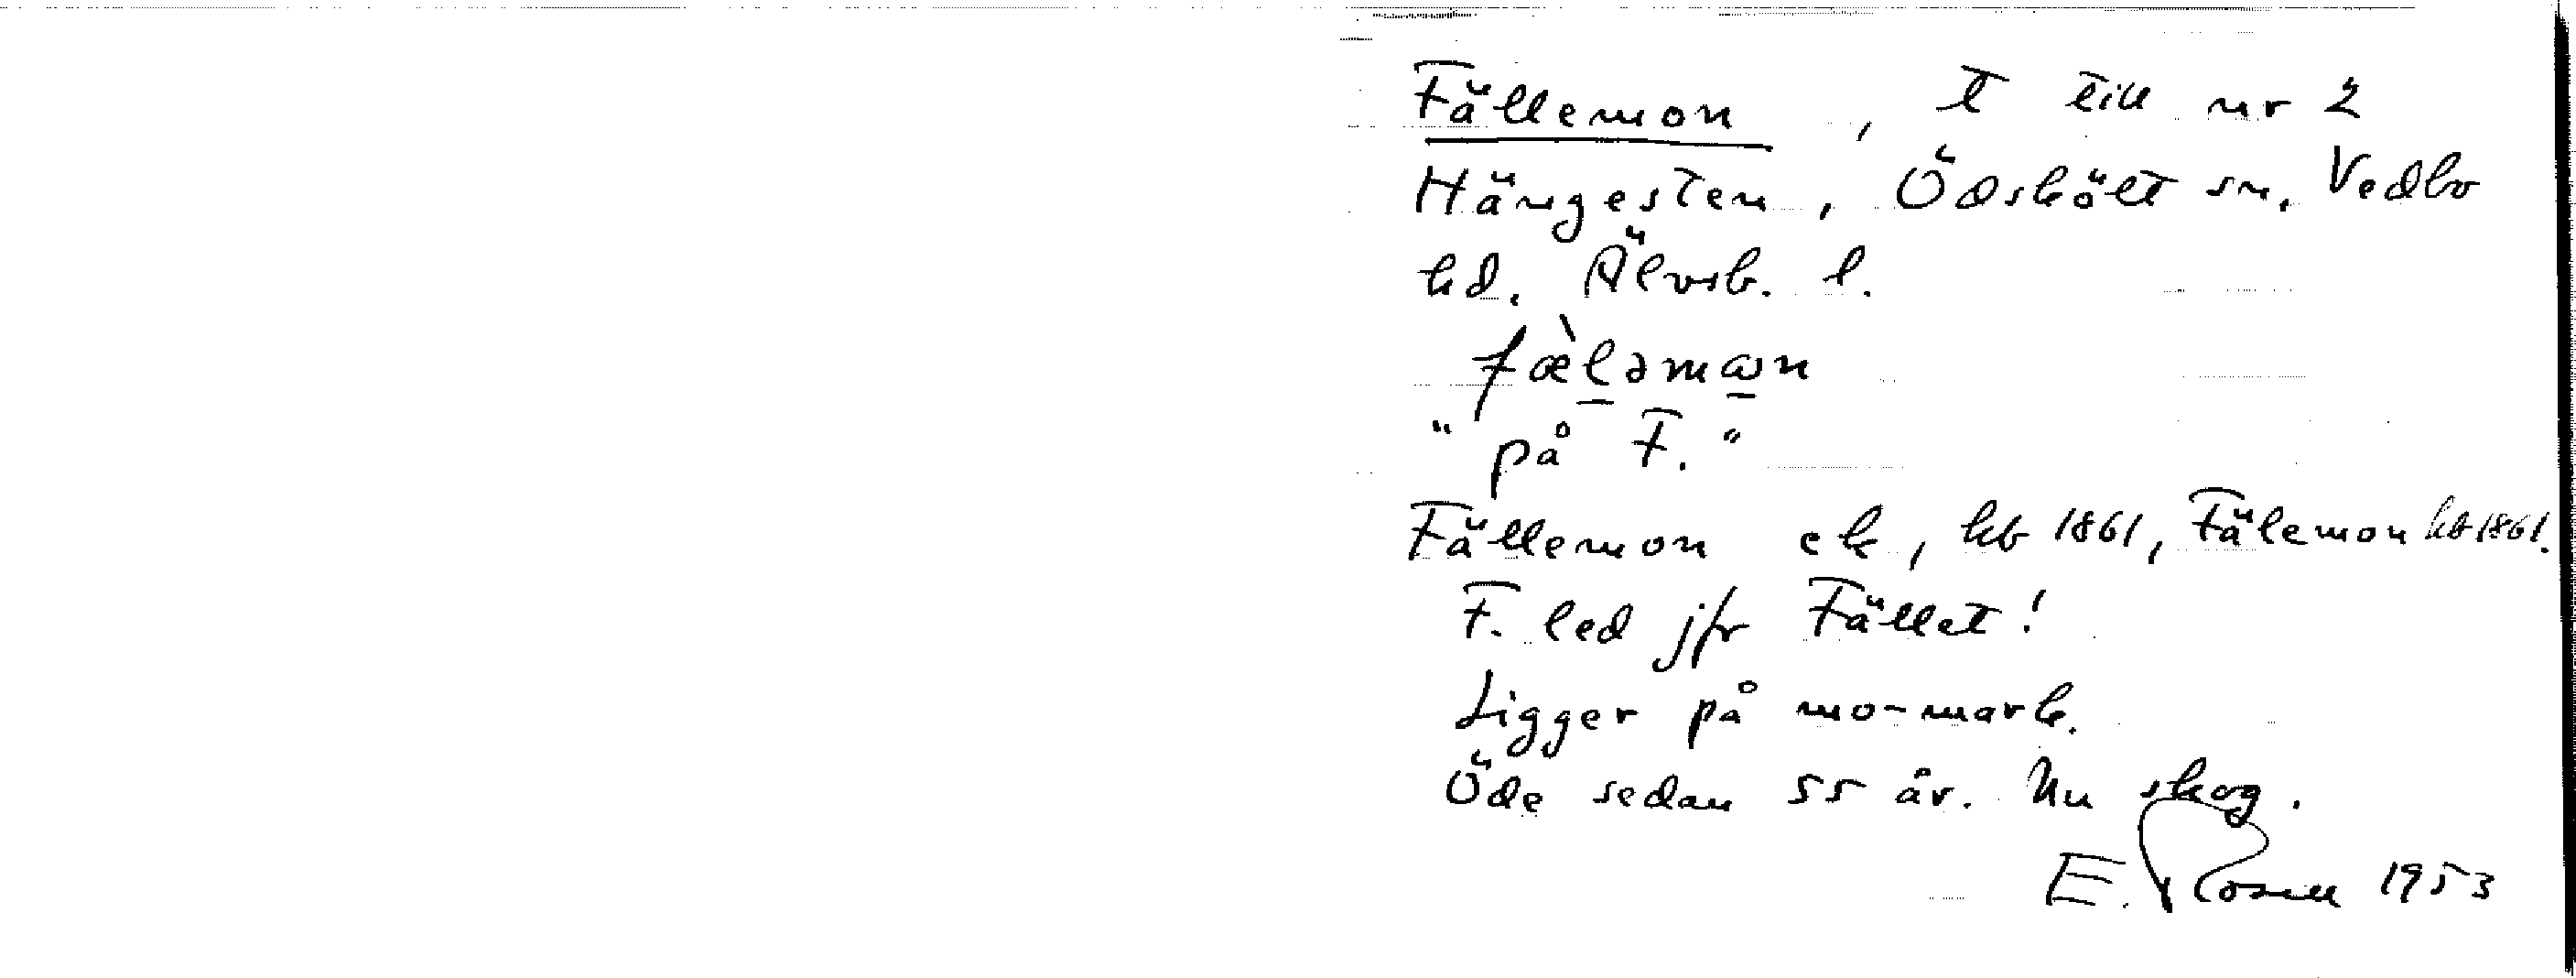 Fällemon, t till nr 2
Hängesten, Ödskölt sn. Vedbo
hd. Älvsb. l.
fæ̀ləmɷn
"på F."
Fällemon ek, hb 1861, Fälemon kb 1861.
F. led jfr Fället!
Ligger på mo-mark.
Öde sedan 55 år. Nu skog.
E. Rosell 1953